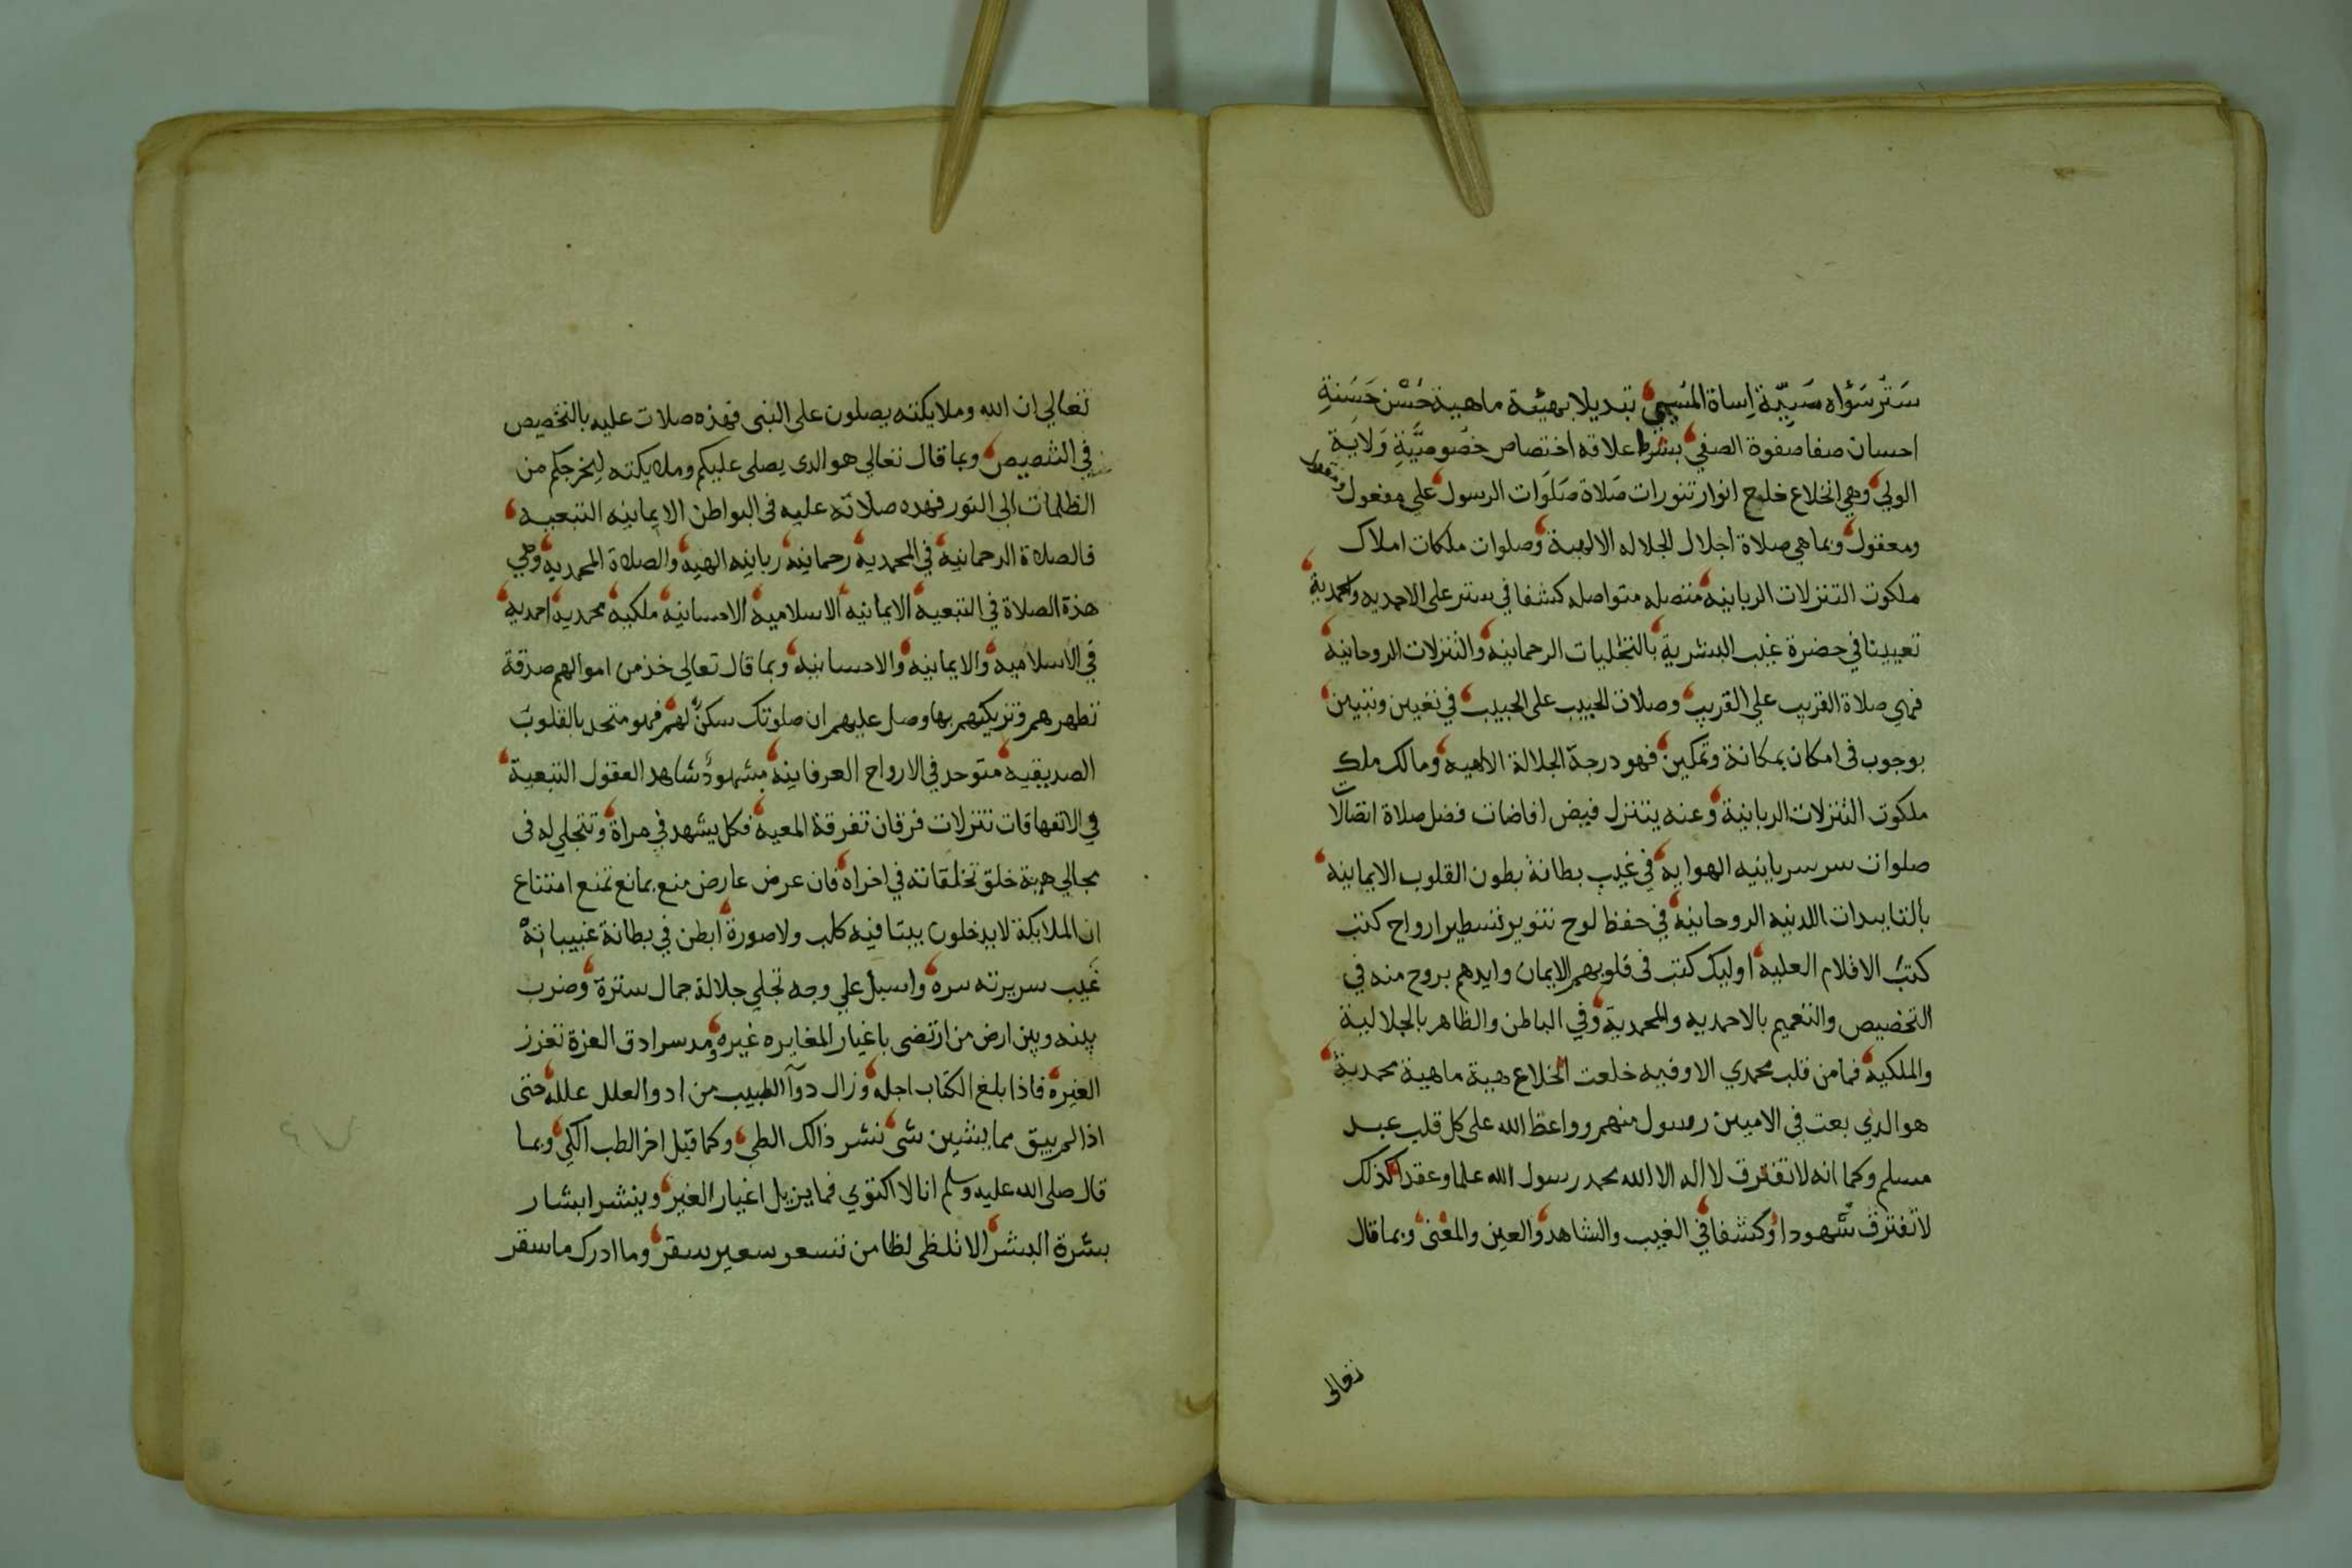 سَتْر سَوْاه سَيِّئة اِساة المُسِيءِ تبديلا بهيئة ماهية حُسْن حَسَنةِ
احسان صفا صفوة الصفي بشرط علاقه اختصاص خصُوصيَّةِ وَلايَةِ
الولي وهي انخلاع خليع انوار تنورات صَلاة صَلَوات الرسول على مفعول
ومعقول وبما هي صلاة اجلال الجلاله الالهية وصلوات ملكات املاك
ملكوت التنزلات الربانيه متصله متواصله كشفا في ستر على الاحديه والمحمدية
تعيينا في حضرة غيب البشرية بالتجليات الرحمانيه والتنزلات الروحانيه
فهي صلاة القريب علي القريب وصلات الحبيب على الحبيب في تعيين وتبيين
بوجوب في امكان بمكانة وتمكين فهو درجة الجلالة الالهيه ومالك ملك
ملكوت التنزلات الربانية وعنه يتنزل فيض افاضات فضل صلاة اتصالات
صلوات سر سريانيه الهوايه في غيب بطانة بطون القلوب الايمانيه
بالتاييدات اللدنيه الروحانيه في حفظ لوح تنوير تسطير ارواح كتب
كتبُ الاقلام العليه اوليك كتب في قلوبهم الايمان وايدهم بروح منه في
التخصيص والتعميم بالاحمديه والمحمدية وفي الباطن والظاهر بالجلالية
والملكيه فما من قلب محمدي الا وفيه خلعت انخلاع هيبة ماهية محمدية
هو الذي بعث في الاميين رسول منهم وواعظ الله على كل قلب عبد
مسلم وكما انه لا تفترق لا اله الا الله محمد رسول الله علما وعقدا كذلك
لا تفترق شهودا وكشفا في الغيب والشاهد والعين والمعنى وبما قال
تعالى
تعالي ان الله وملايكته يصلون على النبى فهذه صلات عليه بالتخصيص
في التنصيص وبما قال تعالي هو الدى يصلى عليكم وملايكته ليخرجكم من
الظلمات الى النور فهده صلاته عليه فى البواطن الايمانيه التبعيه
فالصلاة الرحمانيه في المحمديه رحمانيه ربانيه الهيه والصلاة المحمديه وهي
هذه الصلاة في التبعيه الايمانيه الاسلاميه الاحسانيه ملكيه محمديه احمديه
في الاسلاميه والايمانيه والاحسانيه وبما قال تعالى خذ من اموالهم صدقة
تطهرهم وتزكيهم بها وصل عليهم ان صلوتك سكنٌ لهم فهو متحد بالقلوب
الصديقيه متوحد في الارواح العرفانيه مشهود شاهد العقول التبعية
في الاتفهاقات تنزلات فرقان تفرقة المعيه فكل يشهد في مراة وتتجلي له فى
مجالي هبة خلق تخلقاته في اخراه فان عرض عارض منع بمانع تمنع امتناع
ان الملايكة لا يدخلون بيتا فيه كلب ولا صورة ابطن في بطانة غيبياته
غيب سريرته سره واسبل علي وجه تجلي جلالة جمال ستره وضرب
بينه وبين ارض من ارتضى باغيار المغايره غيره ومد سرادق العزة تعزز
الغيره فاذا بلغ الكتاب اجله وزال دوآ الطبيب من ادوا العلل علله حتى
اذا لم يبق مما ينشين شى نشر ذالك الطي وكما قيل اخر الطب الكي وبما
قال صلى الله عليه وسلم انا لا اكتوي فما يزيل اغيار الغير وينشر ابشار
بشرة البشر الا تلظى لظا من تسعر سعير سقر وما ادرك ما سقر